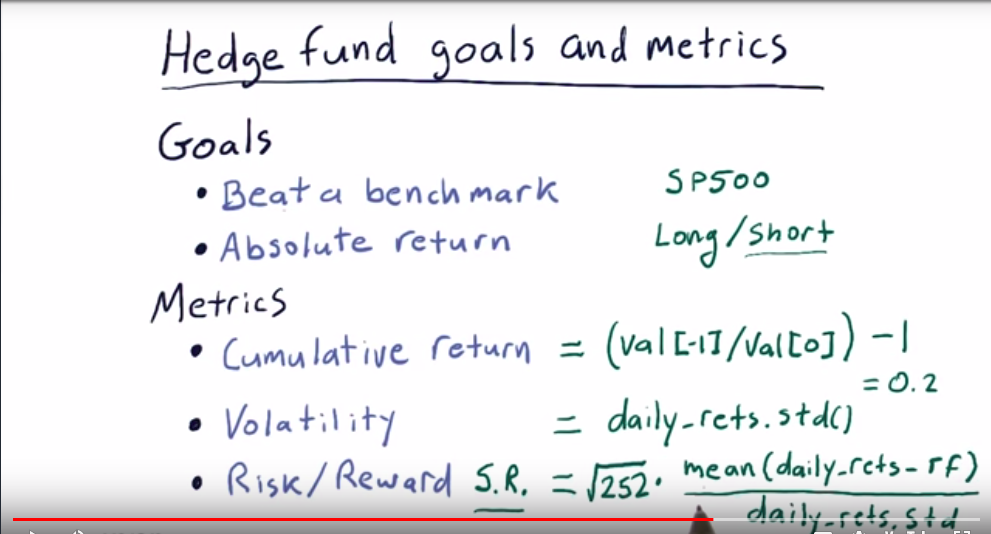 Hedge fund goals and metrics
Goals
• Beat a benchmark SP500
• Absolute return Long/Short
Metrics
• Cumulative return = (val[-1]/val[0]) - 1
= 0.2
• Volatility = daily_rets.std()
• Risk/Reward S.R. = √252 · mean(daily_rets - rf)
daily_rets.std